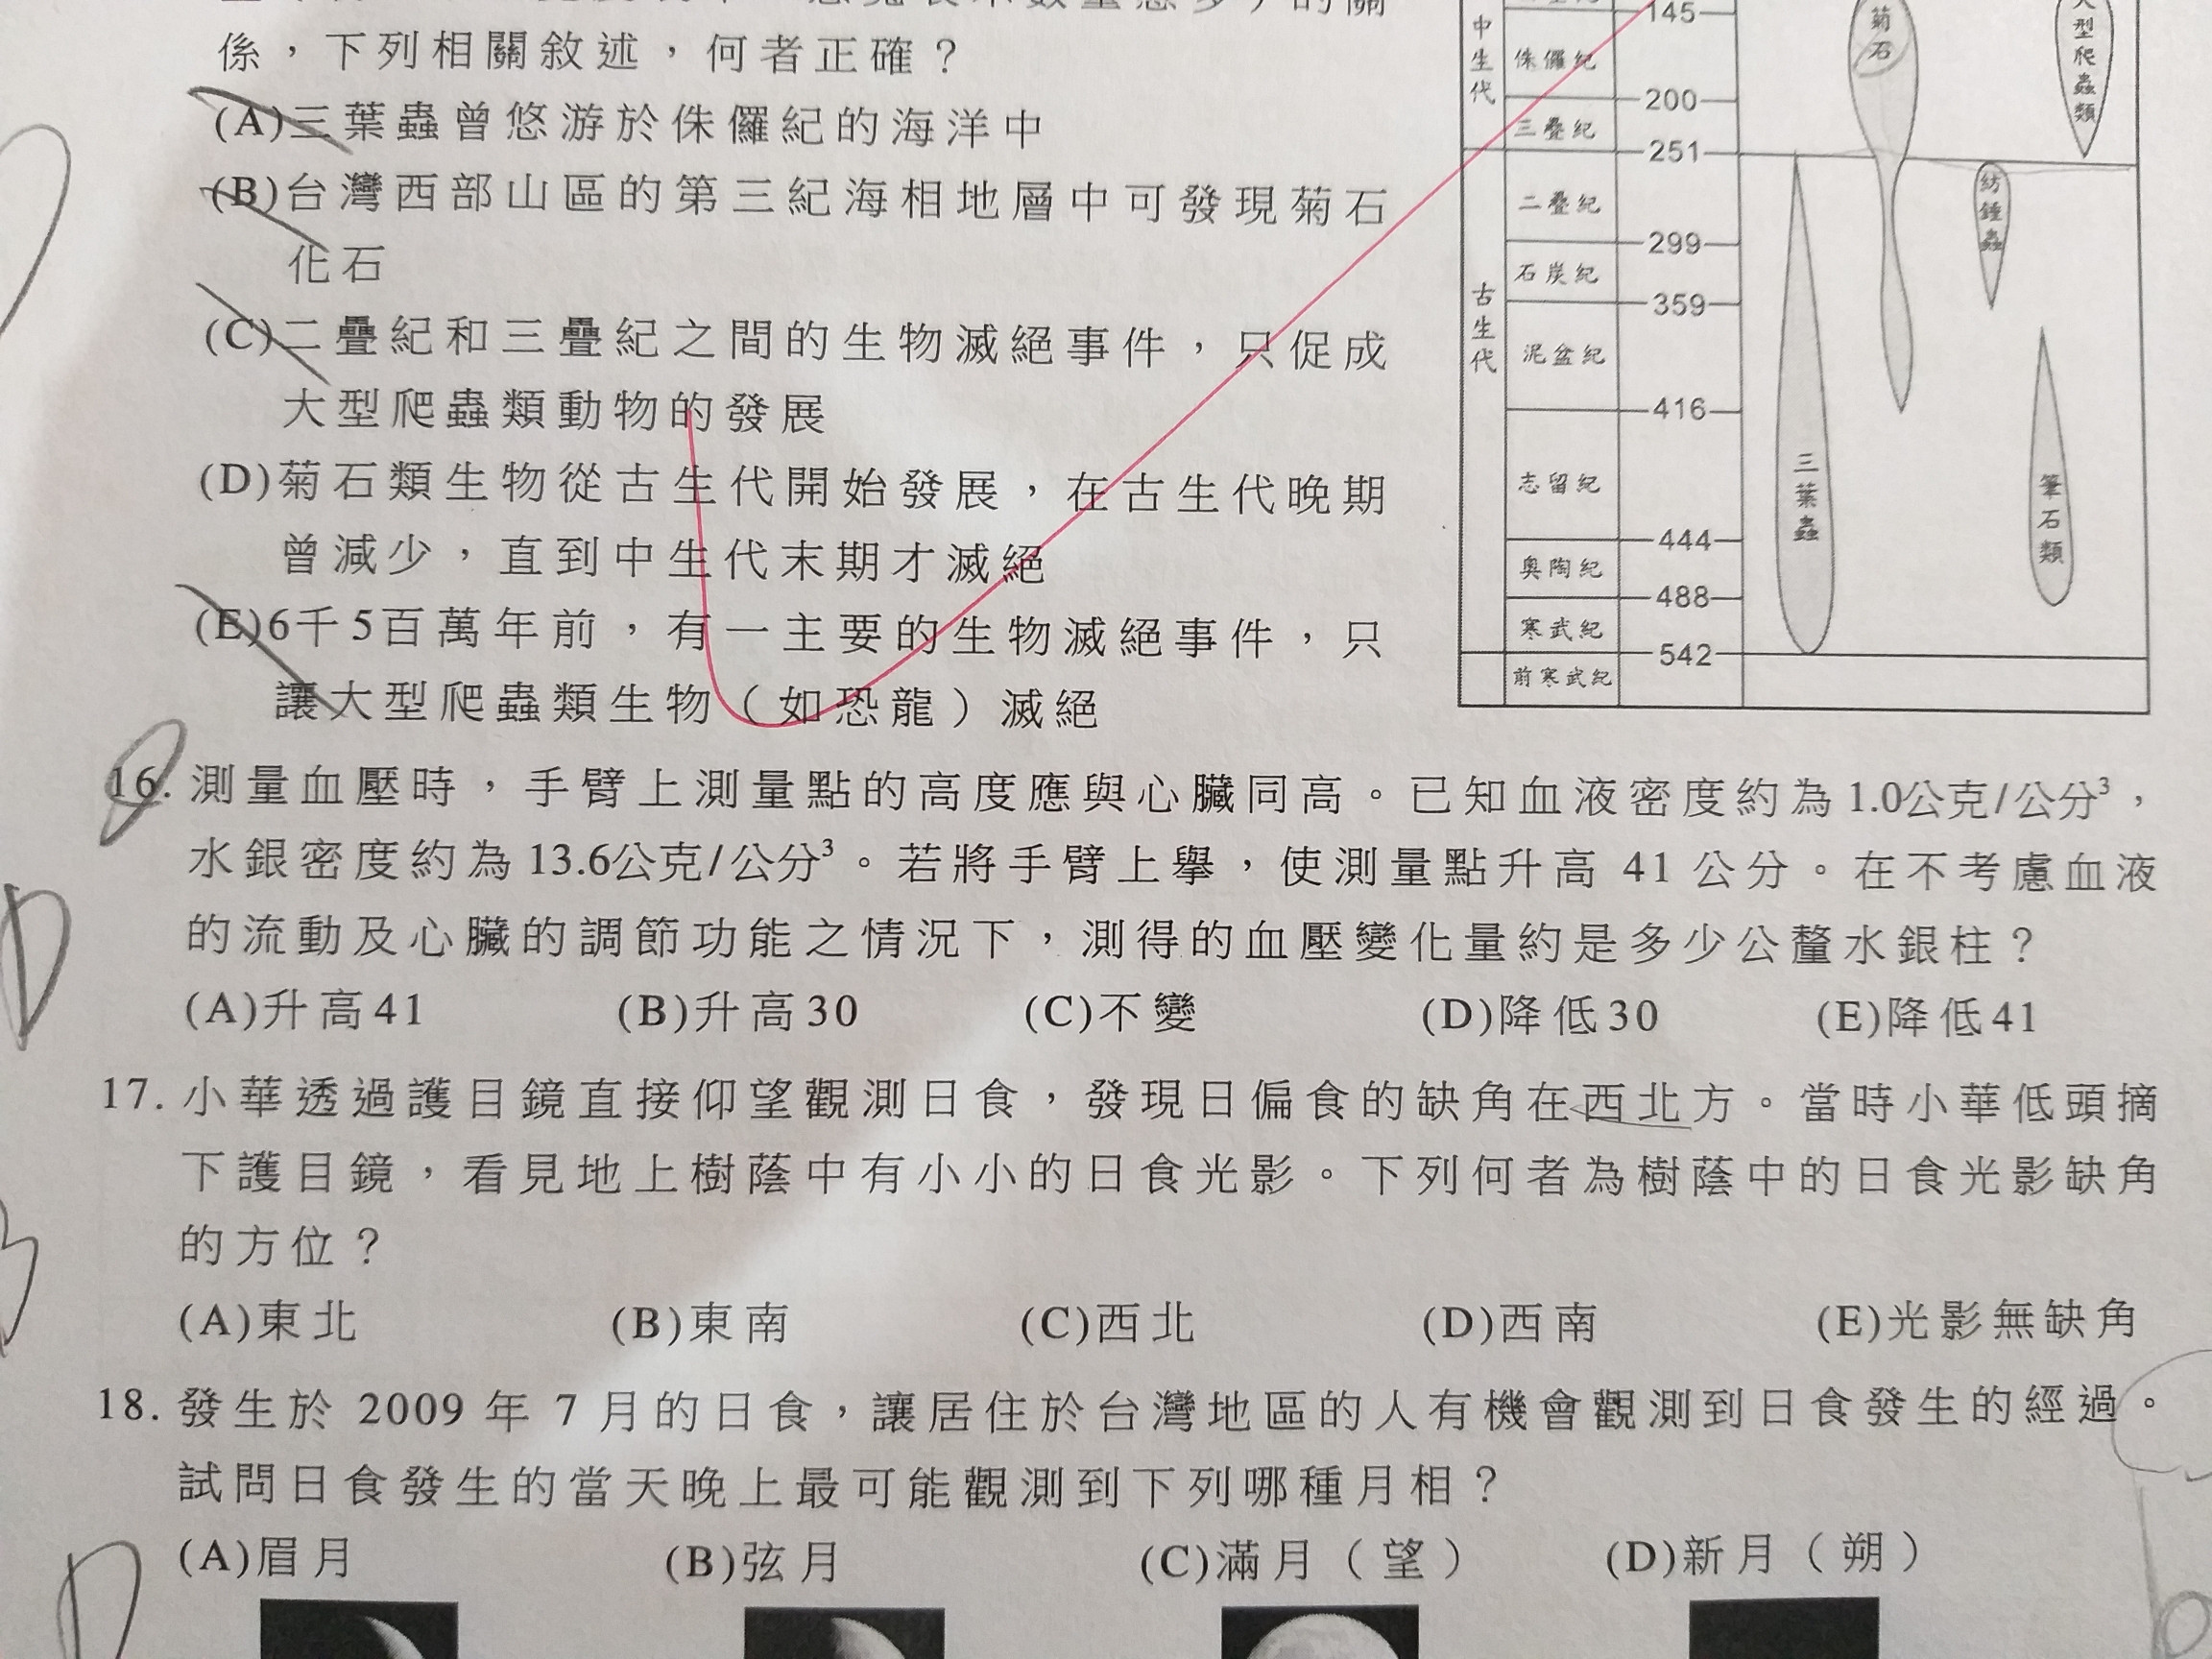 係，下列相關敘述，何者正確？
(A)三葉蟲曾悠游於侏儸紀的海洋中
(B)台灣西部山區的第三紀海相地層中可發現菊石
化石
(C)二疊紀和三疊紀之間的生物滅絕事件，只促成
大型爬蟲類動物的發展
(D)菊石類生物從古生代開始發展，在古生代晚期
曾減少，直到中生代末期才滅絕
(E)6千5百萬年前，有一主要的生物滅絕事件，只
讓大型爬蟲類生物（如恐龍）滅絕
中生代
侏儸紀
三疊紀
古生代
二疊紀
石炭紀
泥盆紀
志留紀
奧陶紀
寒武紀
前寒武紀
145
200
251
299
359
416
444
488
542
菊石
大型爬蟲類
紡錘蟲
三葉蟲
筆石類
16. 測量血壓時，手臂上測量點的高度應與心臟同高。已知血液密度約為1.0公克/公分³，
水銀密度約為13.6公克/公分³。若將手臂上舉，使測量點升高 41 公分。在不考慮血液
的流動及心臟的調節功能之情況下，測得的血壓變化量約是多少公釐水銀柱？
(A)升高41 (B)升高30 (C)不變 (D)降低30 (E)降低41
D
17. 小華透過護目鏡直接仰望觀測日食，發現日偏食的缺角在西北方。當時小華低頭摘
下護目鏡，看見地上樹蔭中有小小的日食光影。下列何者為樹蔭中的日食光影缺角
的方位？
(A)東北 (B)東南 (C)西北 (D)西南 (E)光影無缺角
18. 發生於 2009 年 7 月的日食，讓居住於台灣地區的人有機會觀測到日食發生的經過。
試問日食發生的當天晚上最可能觀測到下列哪種月相？
(A)眉月 (B)弦月 (C)滿月（望） (D)新月（朔）
D